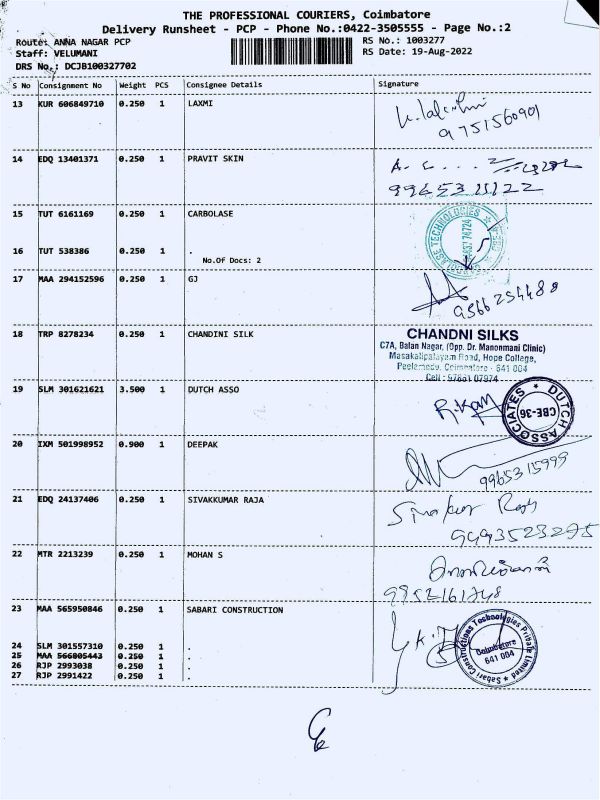 THE PROFESSIONAL COURIERS, Coimbatore
Delivery Runsheet - PCP - Phone No.:0422-3505555 - Page No.:2
Route: ANNA NAGAR PCP RS No.: 1003277
Staff: VELUMANI RS Date: 19-Aug-2022
DRS No.: DCJB100327702
S No Consignment No Weight PCS Consignee Details Signature
13 KUR 606849710 0.250 1 LAXMI
9751560901
14 EDQ 13401371 0.250 1 PRAVIT SKIN
15 TUT 6161169 0.250 1 CARBOLASE
16 TUT 538386 0.250 1 .
No.Of Docs: 2
17 MAA 294152596 0.250 1 GJ
9566254488
18 TRP 8278234 0.250 1 CHANDINI SILK
CHANDNI SILKS
C7A, Balan Nagar, (Opp. Dr. Manonmani Clinic)
Masakalipalayam Road, Hope College,
Peelamedu, Coimbatore - 641 004
Cell : 97881 07974
19 SLM 301621621 3.500 1 DUTCH ASSO
DUTCH ASSOCIATES
CBE-36
20 IXM 501998952 0.900 1 DEEPAK
9965315999
21 EDQ 24137406 0.250 1 SIVAKKUMAR RAJA
22 MTR 2213239 0.250 1 MOHAN S
23 MAA 565950846 0.250 1 SABARI CONSTRUCTION
Sabari Constructions Technologies Private Limited
Coimbatore
641 004
24 SLM 301557310 0.250 1 .
25 MAA 566805443 0.250 1 .
26 RJP 2993038 0.250 1 .
27 RJP 2991422 0.250 1 .